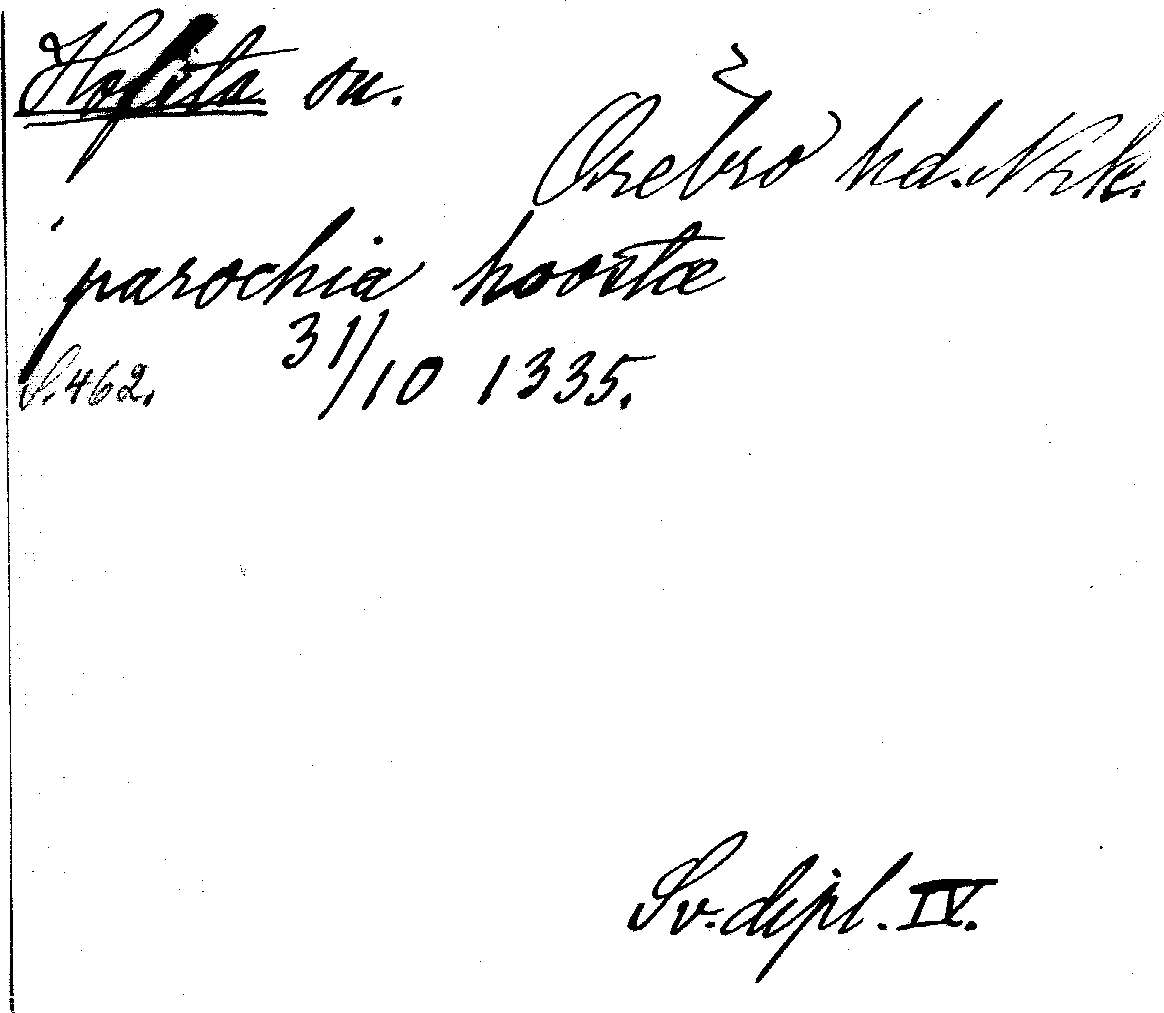 Hofsta sn.
Örebro hd. Nrk.
parochia hoostæ
S. 462. 31/10 1335.
Sv. dipl. IV.